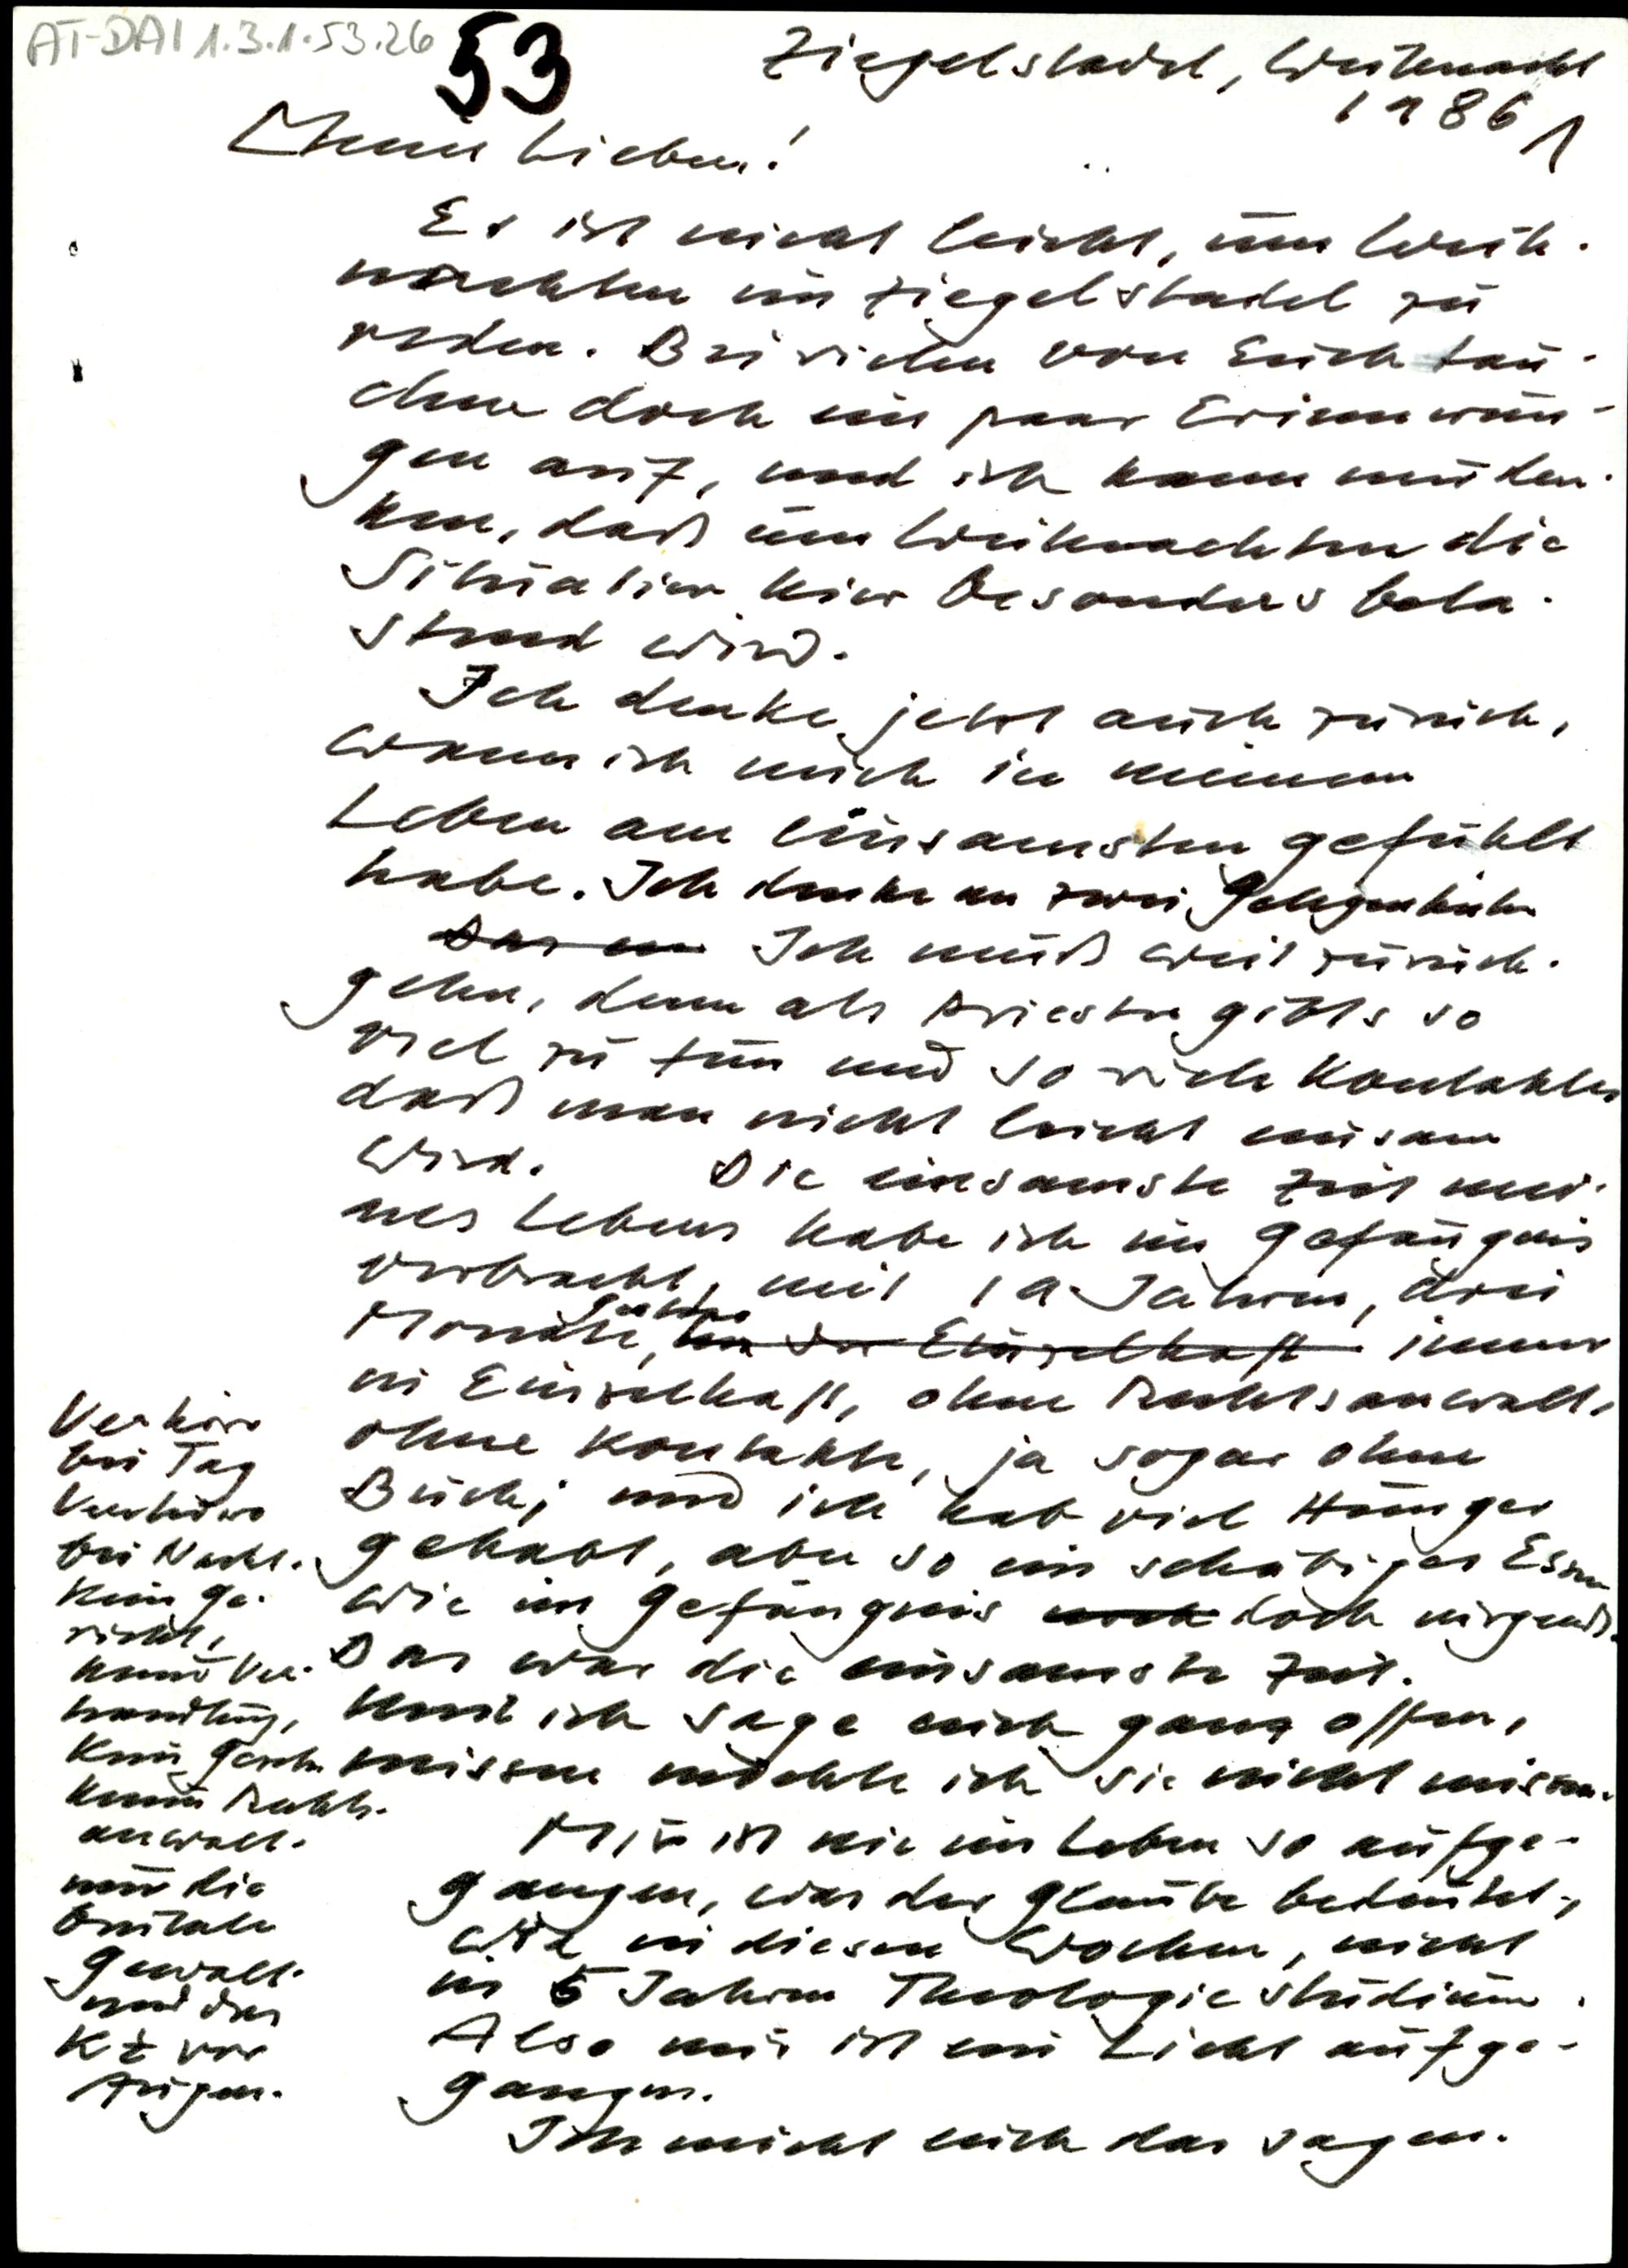 AT-DAI 1.3.1.53.26
53
Ziegelstadel, Weihnacht
1986
1
Meine Lieben!
Es ist nicht leicht, um Weih-
nachten im Ziegelstadel zu
reden. Bei vielen von Euch tau-
chen doch ein paar Erinnerun-
gen auf, und ich kann mir den-
ken, daß um Weihnachten die
Situation hier besonders bela-
stend wird.
Ich denke jetzt auch zurück,
wann ich mich in meinem
Leben am einsamsten gefühlt
habe. Ich denke an zwei Gelegenheiten
Das Ich muß weit zurück-
gehen, denn als Priester gibts so
viel zu tun und so viele Kontakte,
daß man nicht leicht einsam
wird. Die einsamste Zeit mei-
nes Lebens habe ich im Gefängnis
verbracht, mit 19 Jahren, drei
Monate, in der Einzelhaft immer
in Einzelhaft, ohne Rechtsanwalt,
ohne Kontakte, ja sogar ohne
Buch; und ich hab viel Hunger
gehabt, aber so ein schäbiges Essen
wie im Gefängnis noch doch nirgends.
Das war die einsamste Zeit.
Und ich sage euch ganz offen,
missen möchte ich sie nicht missen.
Mir ist nie im Leben so aufge-
gangen, was der Glaube bedeutet,
wie in diesen Wochen, nicht
in 5 Jahren Theologiestudium.
Also mir ist ein Licht aufge-
gangen.
Ich möcht euch das sagen.
Verhöre
bei Tag
Verhöre
bei Nacht.
Kein Ge-
richt,
keine Ver-
handlung,
Kein Gesetz
kein Rechts-
anwalt.
nur die
brutale
Gewalt.
und das
KZ vor
Augen.